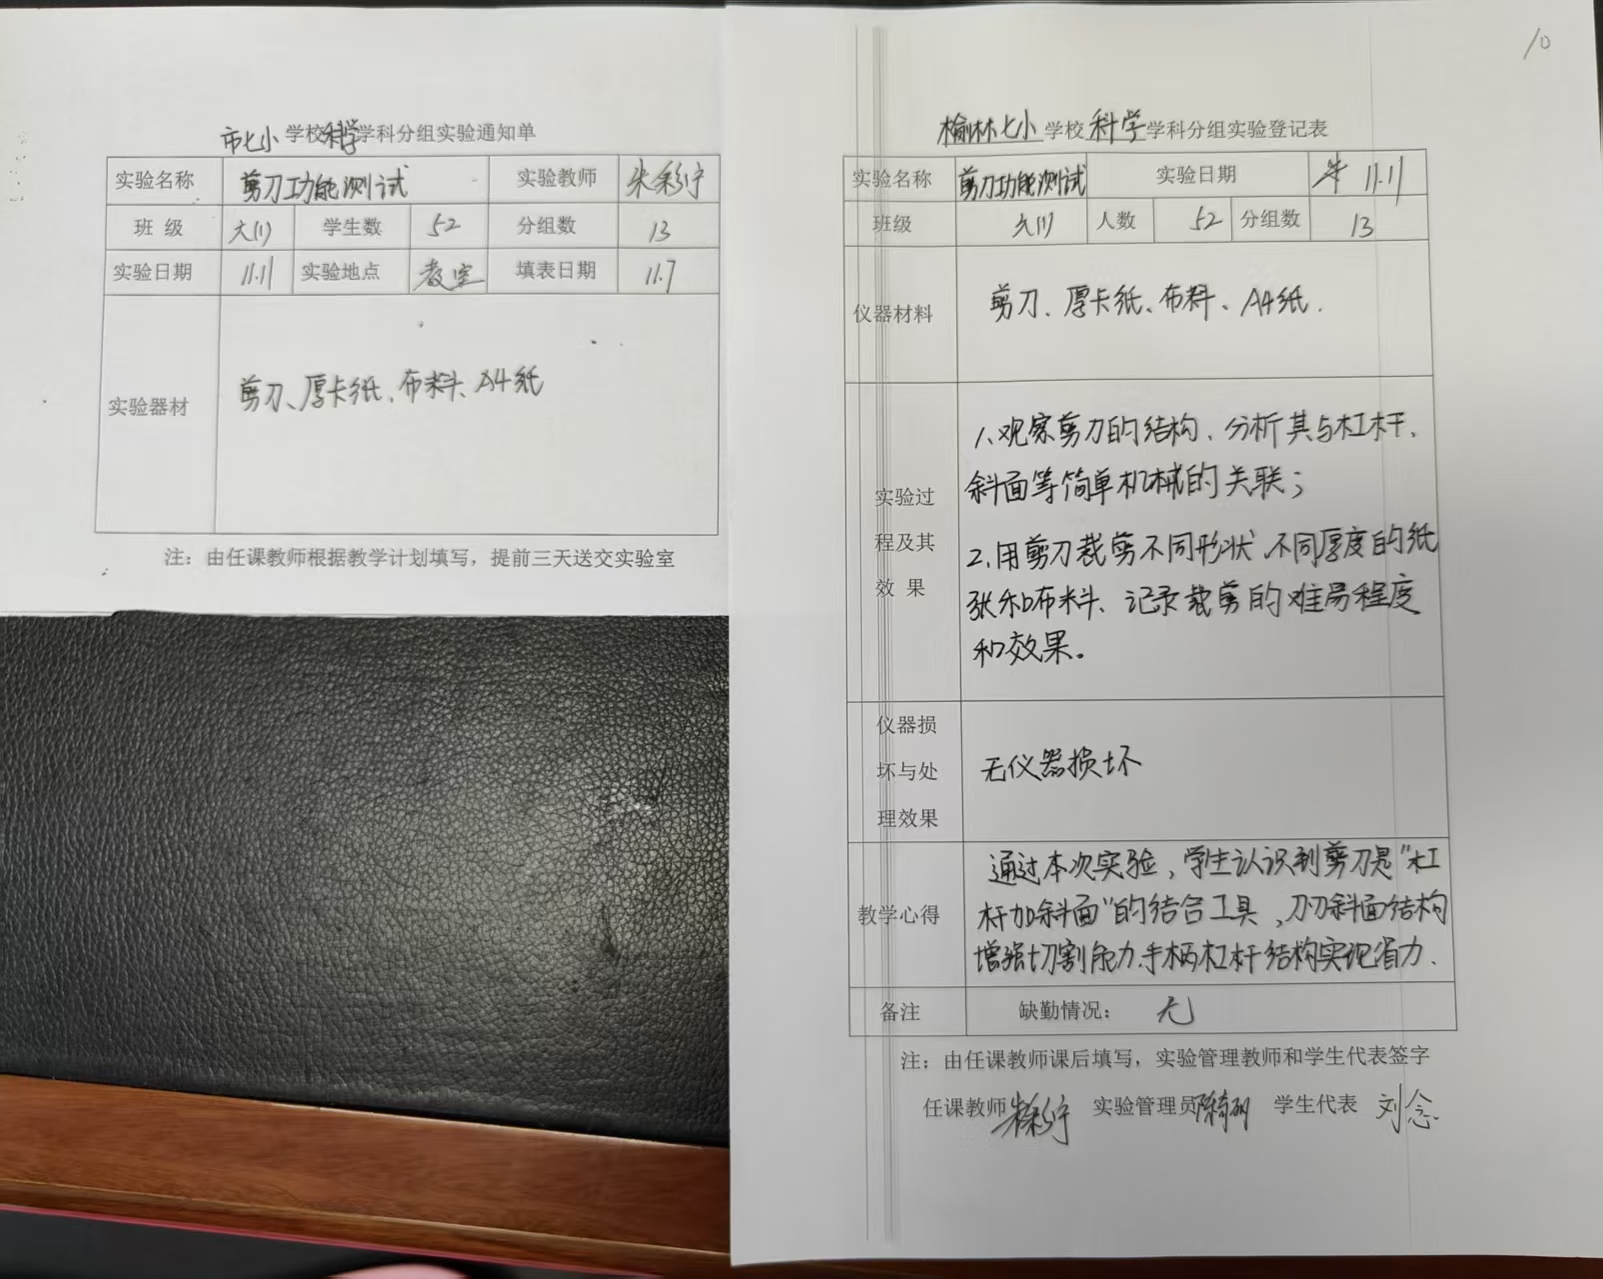 市七小学校科学学科分组实验通知单
实验名称 剪刀功能测试 实验教师 朱彩宁
班 级 六(1) 学生数 52 分组数 13
实验日期 11.11 实验地点 教室 填表日期 11.7
实验器材 剪刀、厚卡纸、布料、A4纸
注：由任课教师根据教学计划填写，提前三天送交实验室
10
榆林七小学校科学学科分组实验登记表
实验名称 剪刀功能测试 实验日期 11.11
班级 六(1) 人数 52 分组数 13
仪器材料 剪刀、厚卡纸、布料、A4纸.
实验过
程及其
效 果
1.观察剪刀的结构、分析其与杠杆、
斜面等简单机械的关联；
2.用剪刀裁剪不同形状、不同厚度的纸
张和布料、记录裁剪的难易程度
和效果。
仪器损
坏与处
理效果
无仪器损坏
教学心得
通过本次实验，学生认识到剪刀是“杠
杆加斜面”的结合工具，刀刃斜面结构
增强切割能力、手柄杠杆结构实现省力.
备注 缺勤情况： 无
注：由任课教师课后填写，实验管理教师和学生代表签字
任课教师 朱彩宁 实验管理员 学生代表 刘念